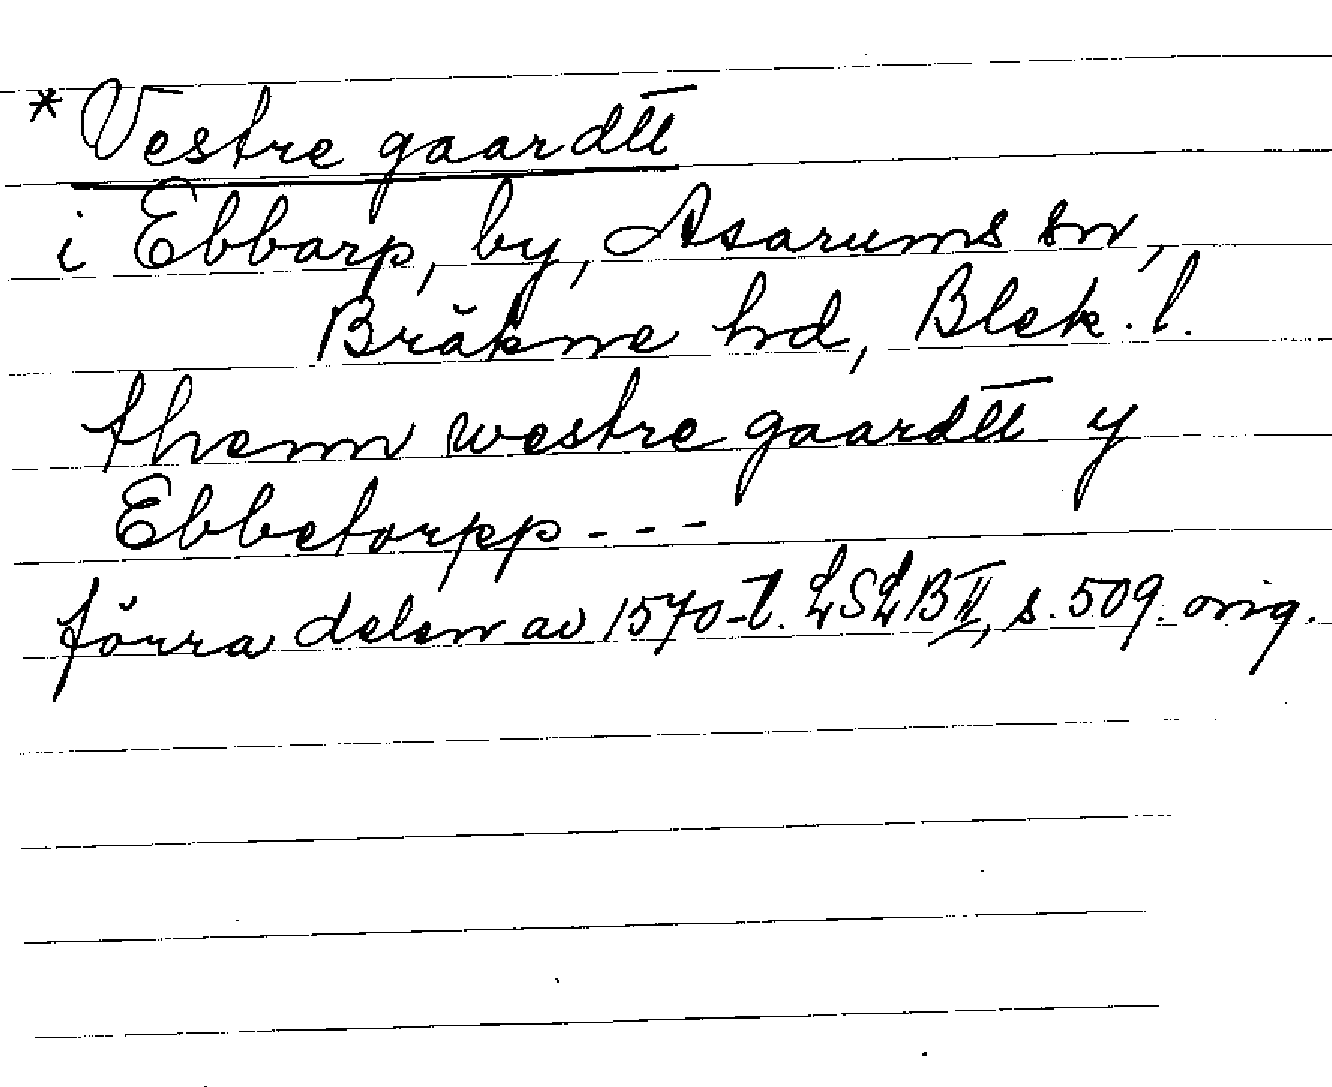 *Vestre gaardtt
i Ebbarp, by, Asarums sn,
Bräkne hd, Blek. l.
them westre gaardtt y
Ebbetorpp - - -
förra delen av 1570-t. LSLB II, s. 509. orig.